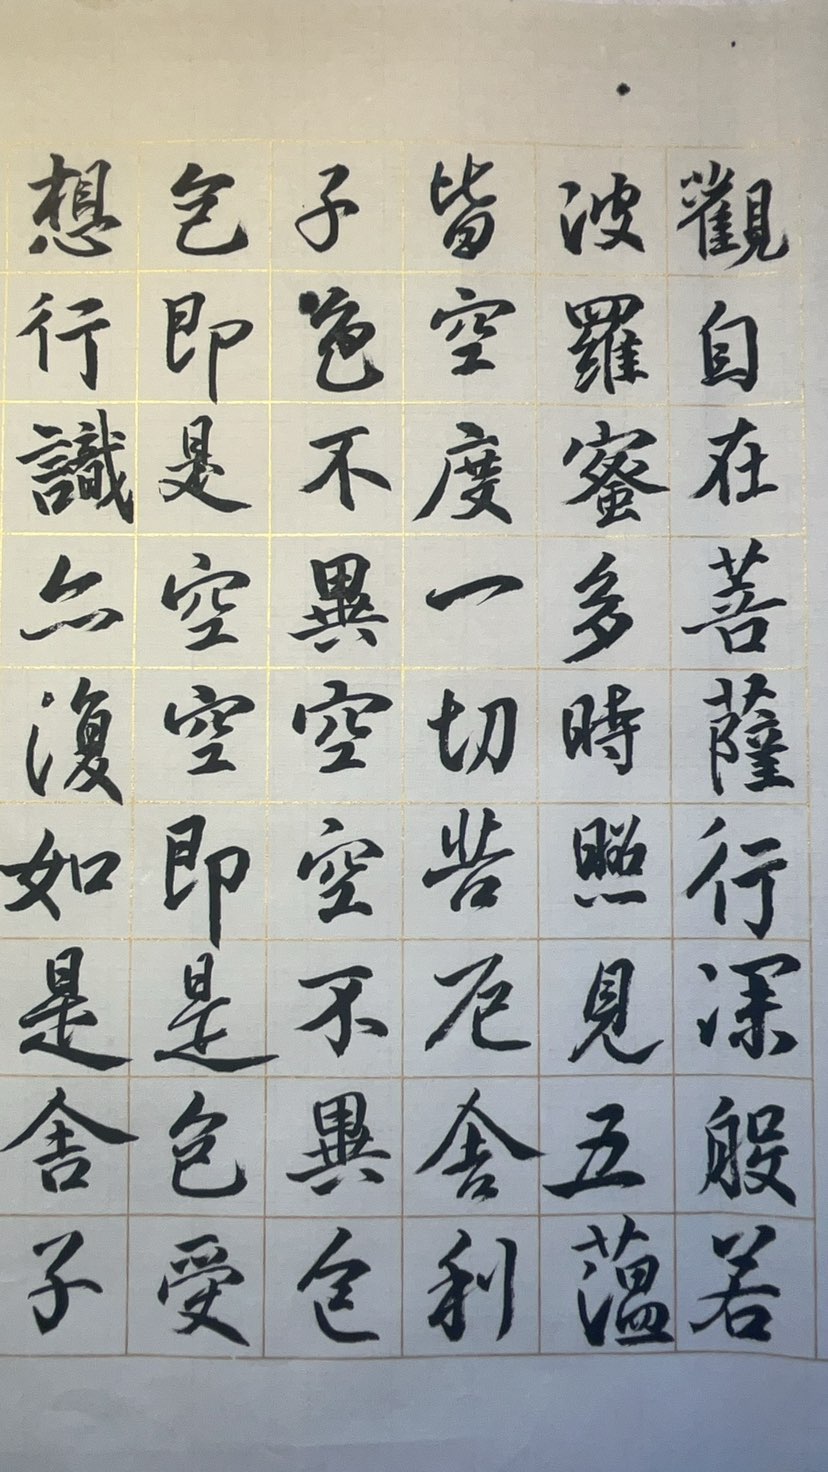 觀自在菩薩行深般若
波羅蜜多時照見五蘊
皆空度一切苦厄舍利
子色不異空空不異色
色即是空空即是色受
想行識亦復如是舍子